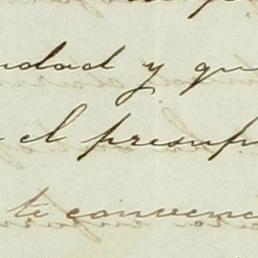 udad y qu
el presup
te convenc